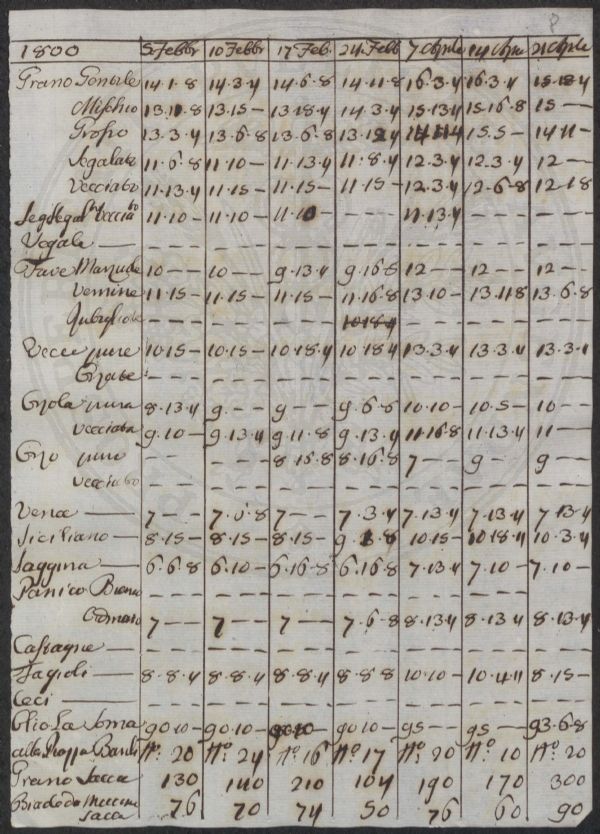 1800 3 Febbr 10 Febbr 17 Feb. 24. Febb 7 Aprle 14 Aprle 21 Aprle
Grano Gentile 14.1.8 14.3.4 14.6.8 14.11.8 16.3.4 16.3.4 15.18.4
Mischio 13.11.8 13.15 — 13.18.4 14.3.4 15.13.4 15.16.8 15 —
Grosso 13.3.4 13.6.8 13.6.8 13.12.4 15.5 — 14.11 —
Segalato 11.6.8 11.10 — 11.13.4 11.18.4 12.3.4 12.3.4 12 —
Vecciato 11.13.4 11.15 — 11.15 — 11.15 — 12.3.4 12.6.8 12.1.8
11.10 — 11.10 — 11.10 — — — 11.13.4 — — — — — —
— — — — — — — — — — — — — — — — — — — — —
Fave 10 — — 10 — — 9.13.4 9.16.8 12 — — 12 — — 12 — —
Vernine 11.15 — 11.15 — 11.15 — 11.16.8 13.10 — 13.11.8 13.6.8
— — — — — — — — — 10.18.4 — — — — — — — — —
Vecce pure 10.15 — 10.15 — 10.18.4 10.18.4 13.3.4 13.3.4 13.3.4
— — — — — — — — — — — — — — — — — — — — —
pura 8.13.4 9. — — 9 — — 9.6.8 10.10 — 10.5 — 10 — —
vecciata 9.10 — 9.13.4 9.11.8 9.13.4 11.16.8 11.13.4 11 — —
puro — — — — — 8.15.8 8.16.8 7 — — 9 — — 9 — —
vecciato — — — — — — — — — — — — — — — — — — — — —
Vena — 7 — — 7.0.8 7 — — 7.3.4 7.13.4 7.13.4 7.13.4
Siciliano — 8.15 — 8.15 — 8.15 — 9.1.8 10.15 — 10.18.4 10.3.4
Saggina — 6.6.8 6.10 — 6.16.8 6.16.8 7.13.4 7.10 — 7.10 —
Panico — — — — — — — — — — — — — — — — — — — — —
7 — — 7 — — 7 — — 7.6.8 8.13.4 8.13.4 8.13.4
Castagne — — — — — — — — — — — — — — — — — — — — — —
Fagioli — 8.8.4 8.8.4 8.8.4 8.8.8 10.10 — 10.4.4 8.15 —
Ceci — — — — — — — — — — — — — — — — — — — — — —
Olio La Soma 90.10 — 90.10 — 90.10 — 90.10 — 95 — — 95 — — 93.6.8
alla Piazza N.º 20 N.º 24 N.º 16 N.º 17 N.º 20 N.º 10 N.º 20
Grano Sacca 130 140 210 104 190 170 300
Sacca 76 70 74 50 76 60 90